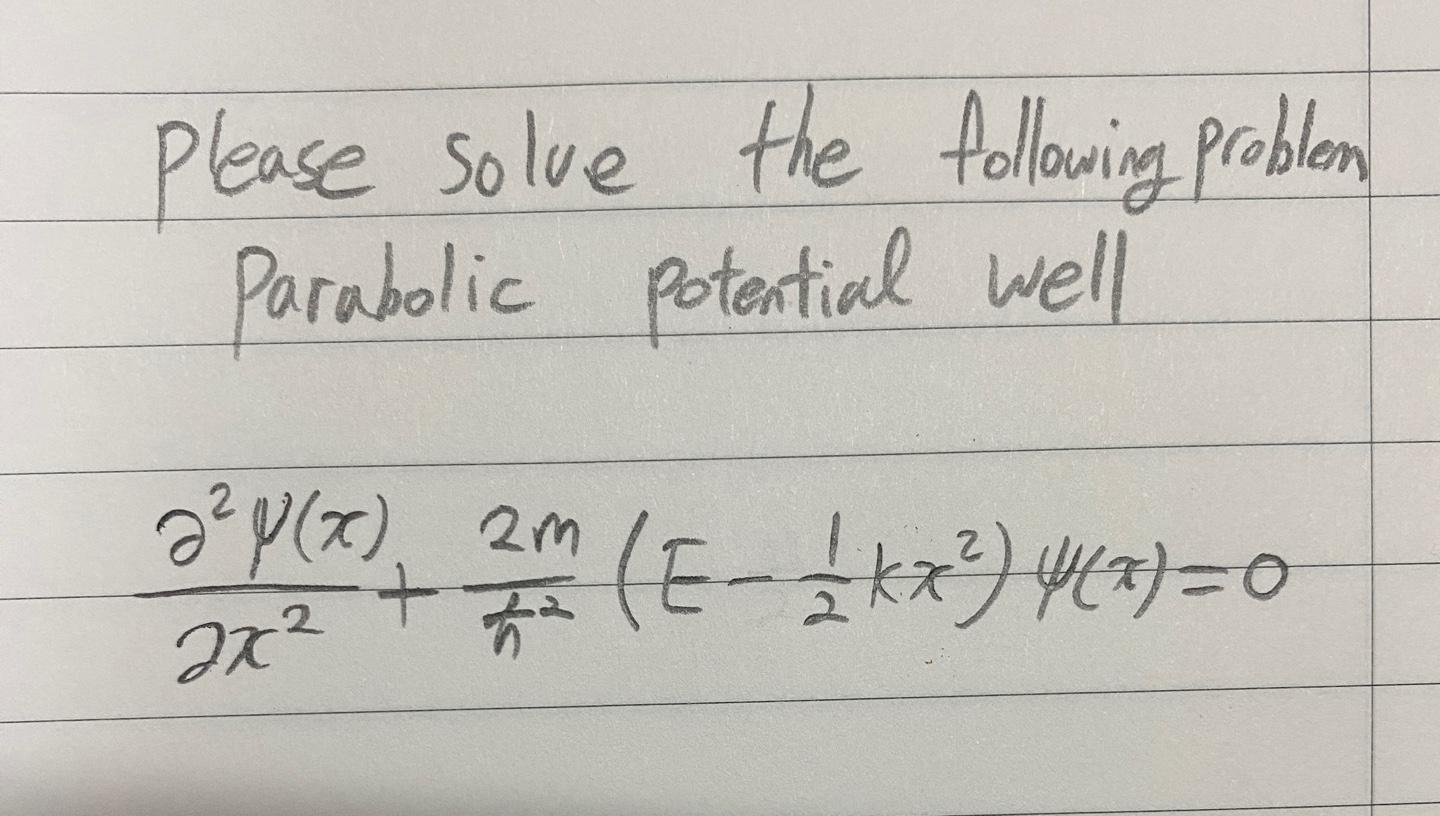 Please solve the following problem
Parabolic potential well
∂²ψ(x)/∂x² + 2m/ħ² (E − 1/2 kx²) ψ(x) = 0